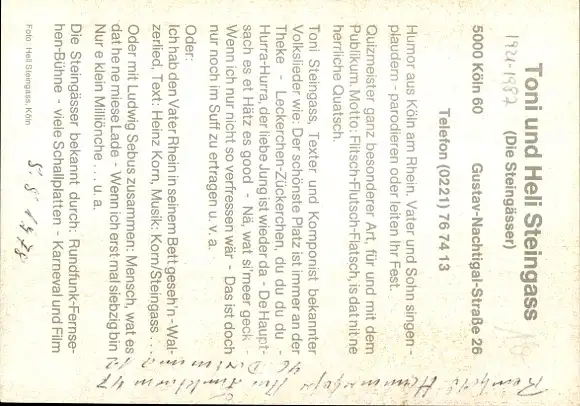 Toni und Heli Steingass
1921-1987
(Die Steingässer)
5000 Köln 60 Gustav-Nachtigal-Straße 26
Telefon (0221) 76 74 13
Humor aus Köln am Rhein, Vater und Sohn singen -
plaudern - parodieren oder leiten Ihr Fest.
Quizmeister ganz besonderer Art, für und mit dem
Publikum. Motto: Flitsch-Flutsch-Flatsch, is dat nit ne
herrliche Quatsch.
Toni Steingass, Texter und Komponist bekannter
Volkslieder wie: Der schönste Platz ist immer an der
Theke - Leckerchen-Zückerchen, du du du du -
Hurra-Hurra, der liebe Jung ist wieder da - De Haupt-
sach es et Hätz es good - Nä, wat si'meer geck -
Wenn ich nur nicht so verfressen wär - Das ist doch
nur noch im Suff zu ertragen u. v. a.
Oder:
Ich hab den Vater Rhein in seinem Bett geseh'n - Wal-
zerlied, Text: Heinz Korn, Musik: Korn/Steingass . . .
Oder mit Ludwig Sebus zusammen: Mensch, wat es
dat he ne miese Lade - Wenn ich erst mal siebzig bin
Nur e klein Milliönche . . . u. a.
Die Steingässer bekannt durch: Rundfunk-Fernse-
hen-Bühne - viele Schallplatten - Karneval und Film
Foto: Heli Steingass, Köln
5. 8 1978